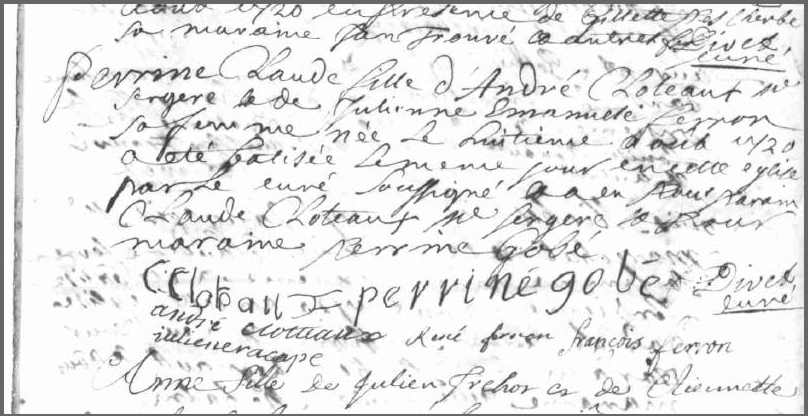 aoust 1720 en presence de Gillette
sa maraine Jan Trouvé & autres Divet
curé
perrine Claude fille d'André Cloteaux me
sergere & de Julienne Emanuele ferron
sa femme née le huitieme aoust 1720
a été batisée le meme jour en cette eglise
par le curé soussigné & a eu pour parain
Claude Cloteaux me sergere & pour
maraine perrine gobé
C Cloteaux perriné gobé Divet
curé
andré cloteaux René ferron françois ferron
julien racape
Anne fille de Julien Trehor et de Etiennette